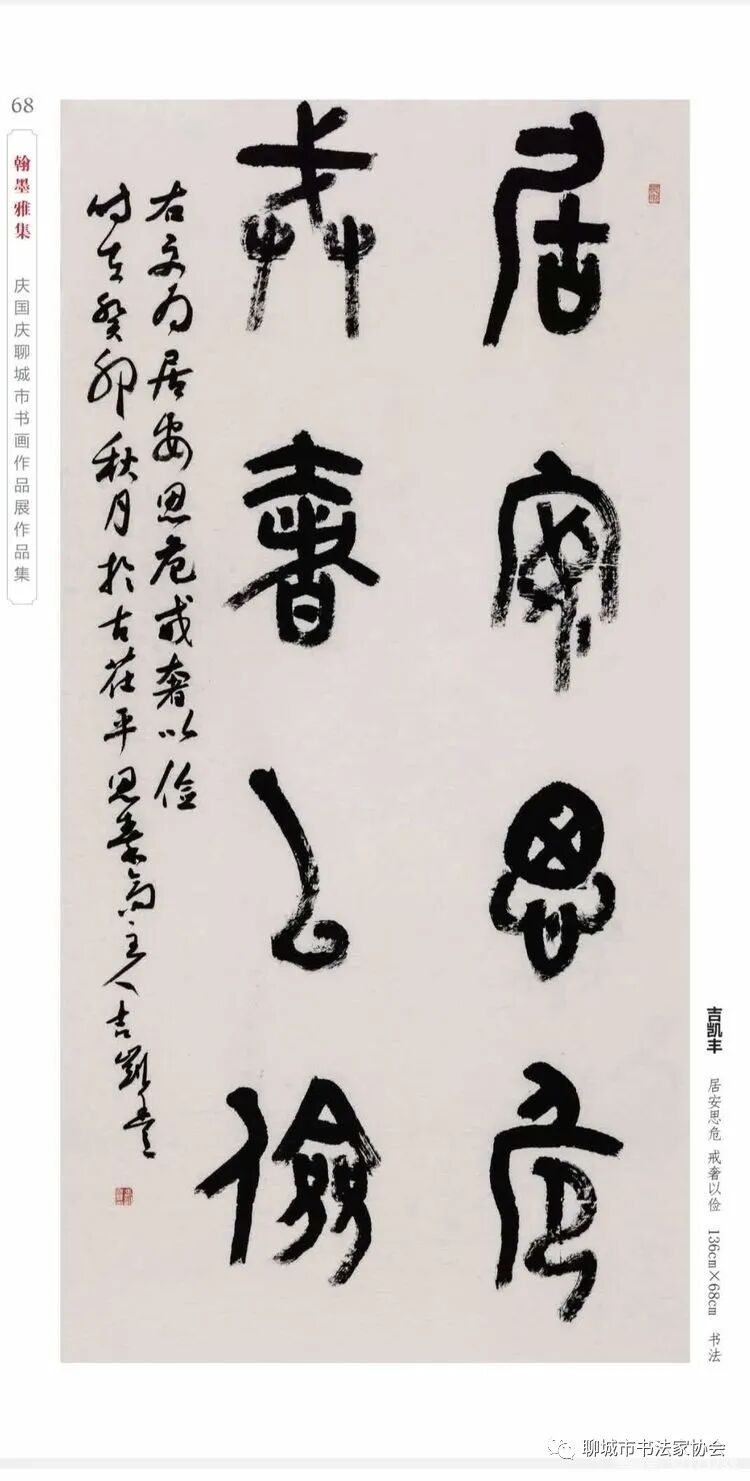 68
翰墨雅集
庆国庆聊城市书画作品展作品集
居安思危
戒奢以儉
右文为居安思危戒奢以俭
时在癸卯秋月於古茌平思素斋主人吉凯丰
吉凯丰
居安思危 戒奢以俭 136cm×68cm 书法
聊城市书法家协会